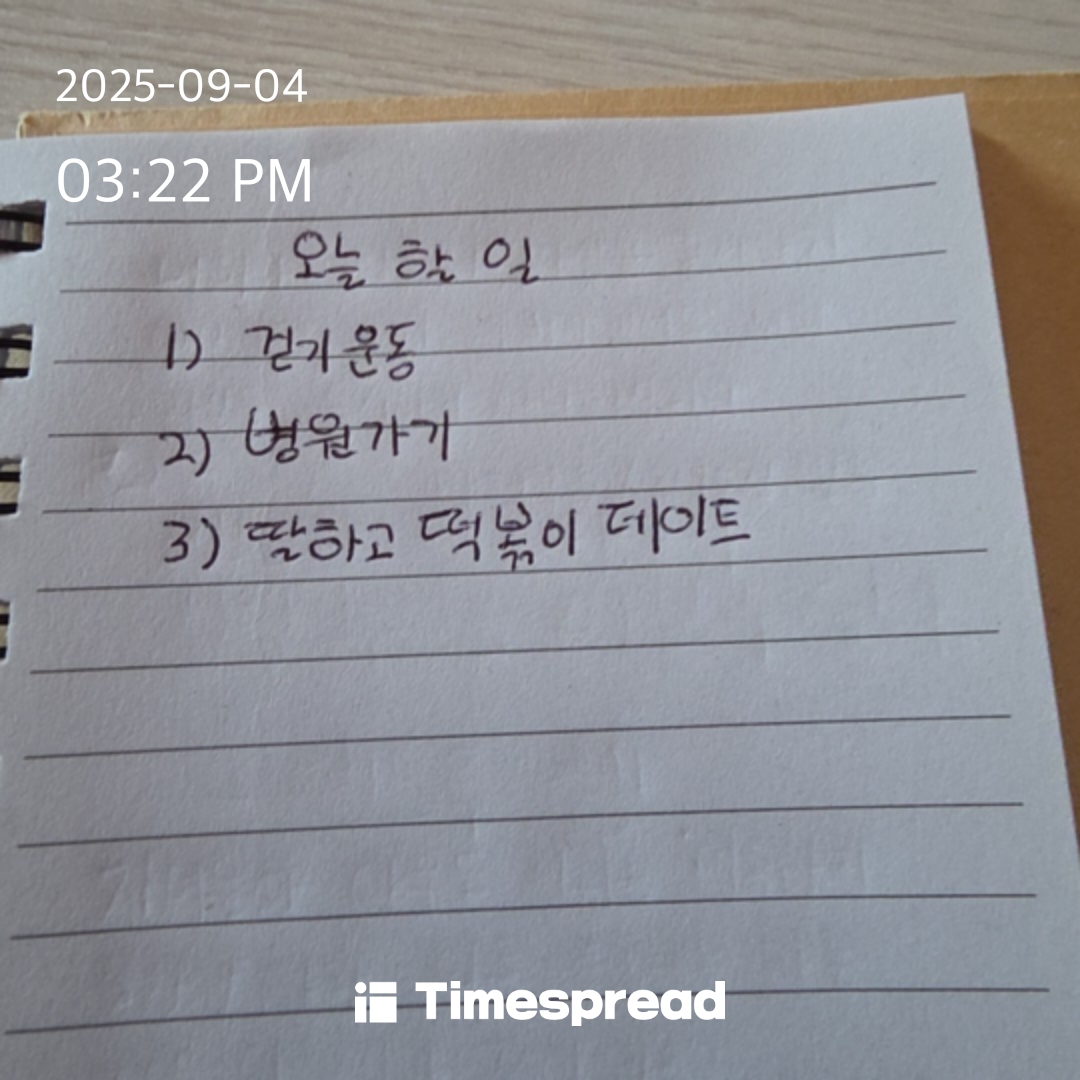 2025-09-04
03:22 PM
오늘 할 일
1) 걷기운동
2) 병원가기
3) 딸하고 떡볶이 데이트
Timespread